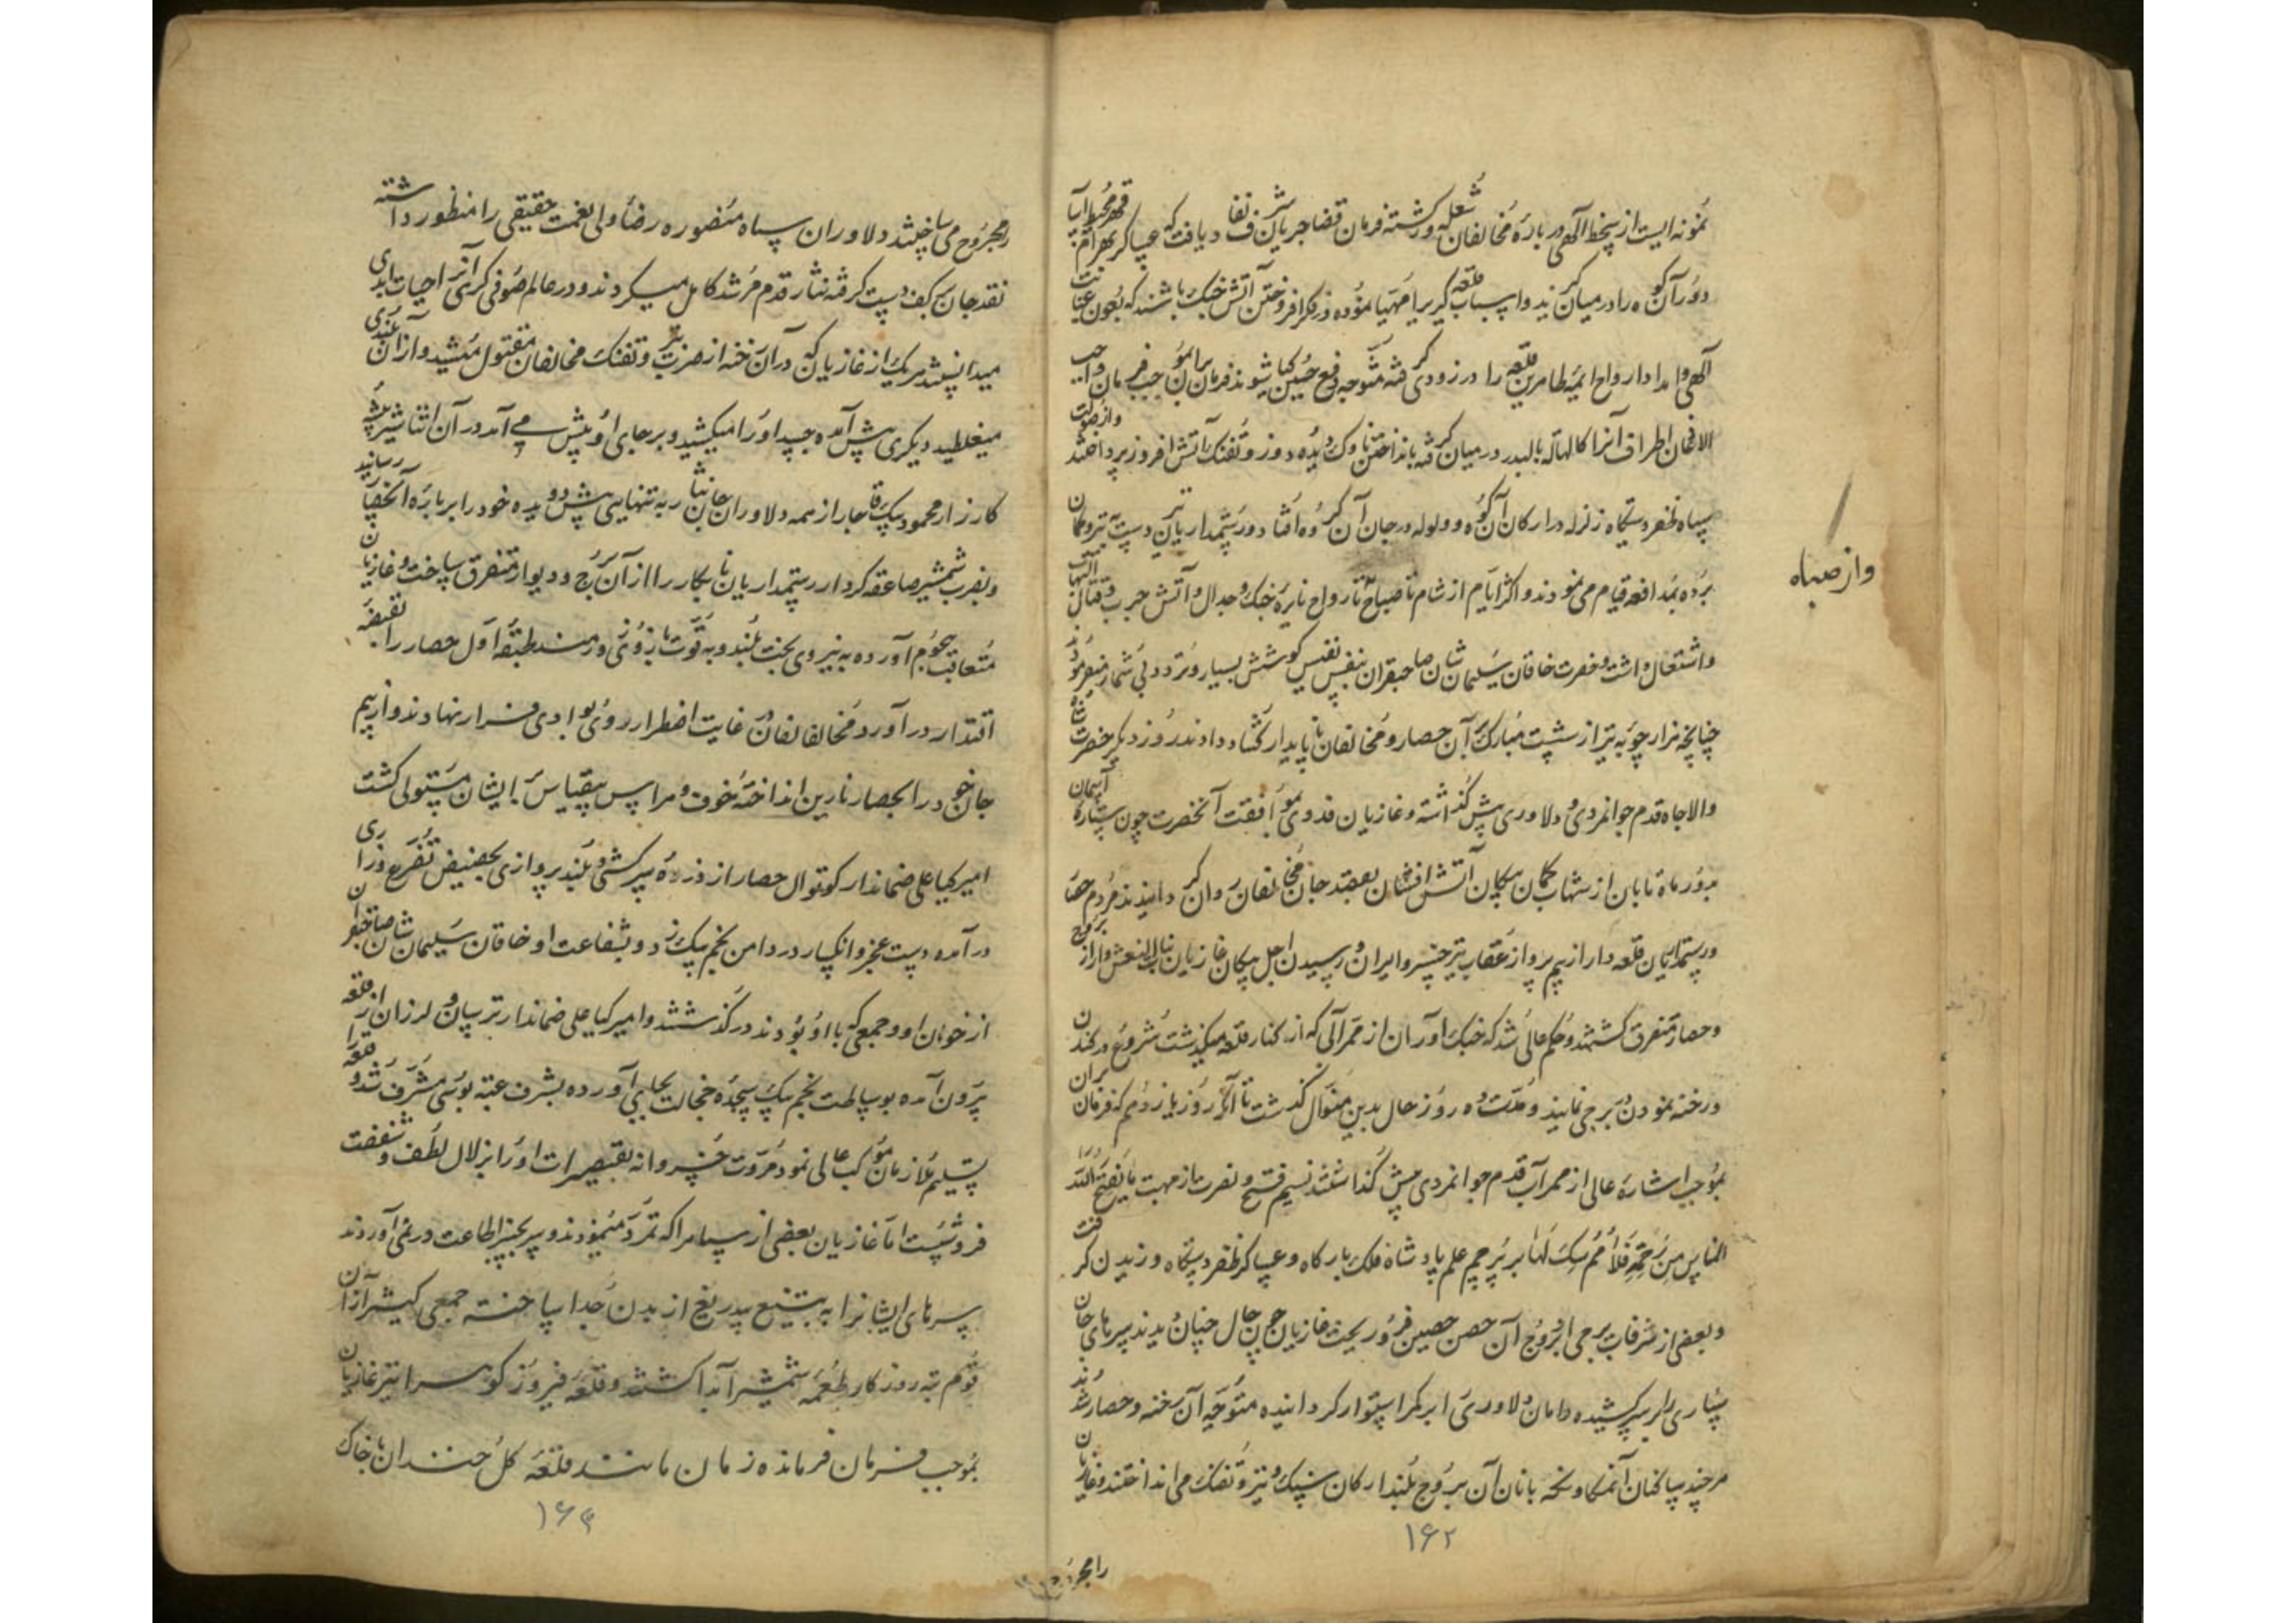 نمونه ایست از سخط الهی در باره مخالفان شعله ور گشته فرمان قضا جریان شرف نفاذ یافت که عساکر بهرام قهر محیط آسا
دور آن کوه را در میان گیرند و اسباب قلعه گیری را مهیا نموده در فکر افروختن آتش جنک باشند که بعون عنایت
الهی و امداد ارواح ائمه طاهرین قلعه را در زودی گرفته متوجه دفع حسین کیا شوند فرمان بران بموجب فرمان واجب
الاذعان اطراف آنرا کالهاله بالبدر در میان گرفته بانداختن ناوک دیده دوز و تفنک آتش افروز پرداختند و از صولت
سپاه ظفر دستگاه زلزله در ارکان آن کوه و ولوله در جان آن گروه افتاد و رستمداریان دست به تیر و کمان
برده بمدافعه قیام می نمودند و اکثر ایام از شام تا صباح و از صباح تا رواح نایره جنک و جدال و آتش حرب و قتال التهاب
و اشتعال داشت و حضرت خاقان سلیمان شان صاحبقران بنفس نفیس کوشش بسیار و تردد بی شمار میفرمودند
چنانچه هزار چوبه تیر از شست مبارک بر آن حصار و مخالفان ناپایدار گشاد دادند روز دیگر حضرت شاه
والاجاه قدم جوانمردی و دلاوری پیش گذاشته و غازیان فدوی بموافقت آنحضرت چون ستاره آسمان
بدور ماه تابان از شهاب کمان پیکان آتش افشان بقصد جان مخالفان روان گردانیدند مردم حصار
و رستمداریان قلعه دار از بیم پرواز عقاب تیر خسرو ایران و رسیدن اجل پیکان غازیان بنات النعش وار از بروج
و حصار متفرق گشتند و حکم عالی شد که جنک آوران از ممر آبی که از کنار قلعه میگذشت شروع در کندن
و رخنه نمودن برجی نمایند و مدت ده روز حال بدین منوال گذشت تا آنکه روز یازدهم که فرمان بران
بموجب اشاره عالی از ممر آب قدم جوانمردی پیش گذاشتند نسیم فتح و نصرت از مهبت ما یفتح الله
للناس من رحمة فلا ممسک لها بر پرچم علم پادشاه فلک بارگاه و عساکر ظفر دستگاه وزیدن گرفت
و بعضی از شرفات برجی از بروج آن حصن حصین فرو ریخت غازیان چون حال چنان دیدند سپرهای جان
سپاری را بر سر کشیده دامان دلاوری را بر کمر استوار گردانیده متوجه آن رخنه و حصار شدند
هر چند ساکنان آنمکان و نکه بانان آن بروج بلند ارکان سنک و تیر و تفنک می انداختند و غازیان
۱۶۲
را مجروح
و از صباه
را مجروح می ساختند دلاوران سپاه منصوره رضاء ولی نعمت حقیقی را منظور داشته
نقد جان بکف دست گرفته نثار قدم مرشد کامل میکردند و در عالم صوفی گری آنرا حیات ابدی
میدانستند هر یک از غازیان که در آن رخنه از ضرب تیر و تفنک مخالفان مقتول میشد و از آن بلندی
میغلطید دیگری پیش آمده جسد او را میکشید و بر جای او پیش می آمد در آن اثنا شیر بیشه
کارزار محمود بیک قاجار از همه دلاوران جانباز به تنهایی پیش دویده خود را بر باره آنحصار رسانید
و بضرب شمشیر صاعقه کردار رستمداریان نابکار را از آن برج و دیوار متفرق ساخت و غازیان
متعاقب هجوم آورده به نیروی بخت بلند و به قوت بازوی زورمند طبقه اول حصار را بقبضه
اقتدار در آورد و مخالفان در غایت اضطرار روی بوادی فرار نهادند و از بیم
جان خود را بحصار نارین انداخته خوف و هراس بیقیاس بر ایشان مستولی گشت
امیر کیا علی ضماندار کوتوال حصار از ذروه سرکشی و بلند پروازی بحضیض تضرع و زاری
در آمده دست عجز و انکسار در دامن نجم بیک زد و بشفاعت او خاقان سلیمان شان صاحبقران
از خون او و جمعی که با او بودند در گذشتند و امیر کیا علی ضماندار ترسان و لرزان از قلعه
بیرون آمده بوساطت نجم بیک سجده خجالت بجای آورده بشرف عتبه بوسی مشرف شد و قلعه را
تسلیم ملازمان موکب عالی نمود مروت خسروانه تقصیرات او را بزلال لطف و شفقت
فرو شست اما غازیان بعضی از سپاه را که تمرد مینمودند و سر بچنبر اطاعت در نمی آوردند
سرهای ایشانرا به تیغ بیدریغ از بدن جدا ساختند جمعی کثیر از آن
قوم تبه روزکار طعمه شمشیر آبدار گشتند و قلعه فیروزکوه را نیز غازیان
بموجب فرمان فرمانده زمان مانند قلعه کل خندان با خاک
۱۶۳